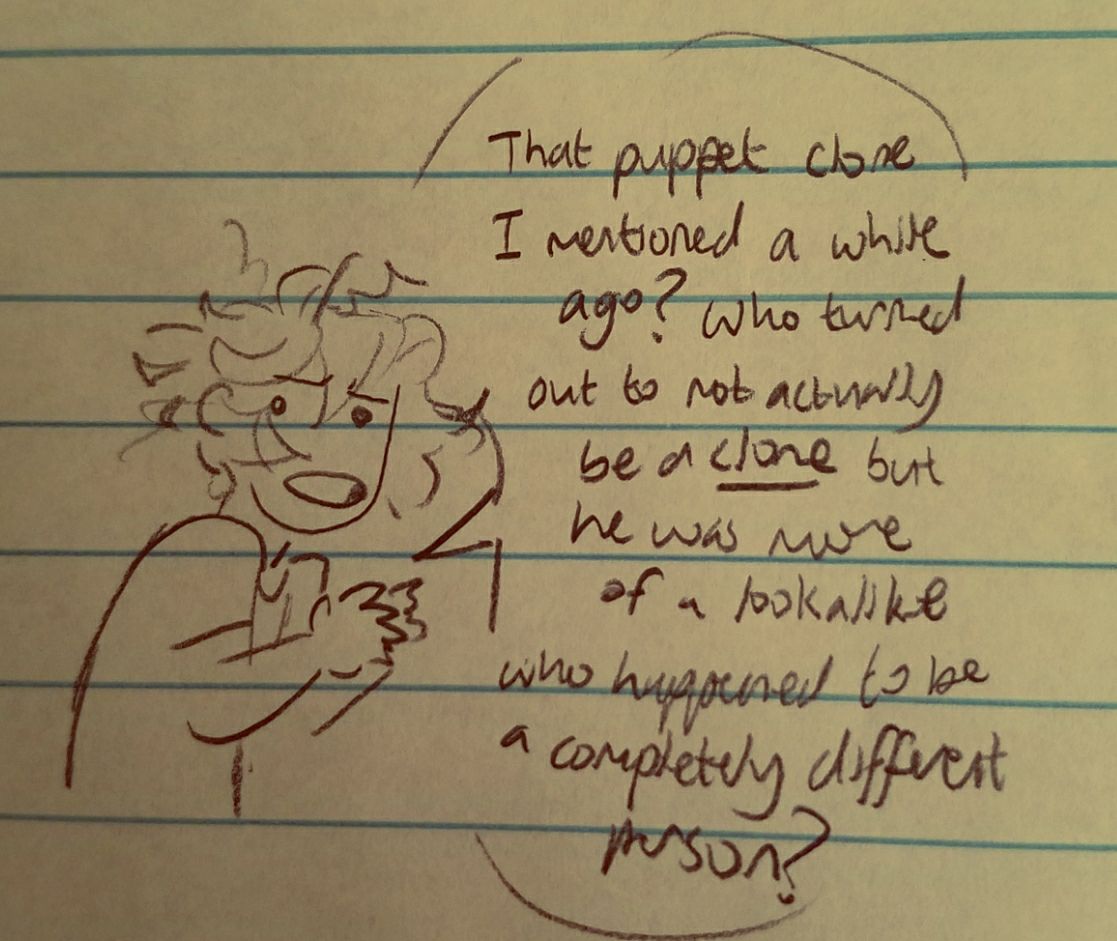 That puppet clone
I mentioned a while
ago? who turned
out to not actually
be a clone but
he was more
of a lookalike
who happened to be
a completely different
person?